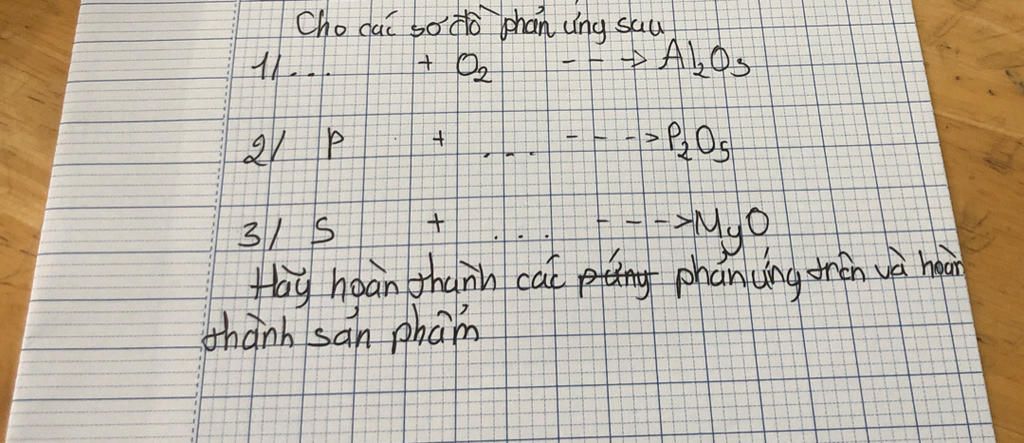 Cho các sơ đồ phản ứng sau
1/ ... + O₂ ---> Al₂O₃
2/ P + ... ---> P₂O₅
3/ S + ... ---> MgO
Hãy hoàn thành các pứng phản ứng trên và hoàn
thành sản phẩm